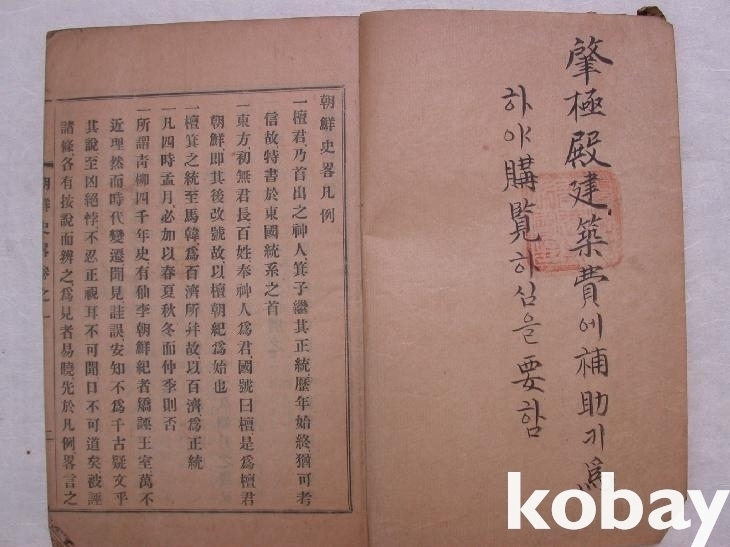 肇極殿建築費에補助기爲
하야購覧하심을要함
朝鮮史畧凡例
一檀君乃首出之神人箕子繼其正統歷年始終猶可考
信故特書於東國統系之首
一東方初無君長百姓奉神人爲君國號曰檀是爲檀君
朝鮮卽其後改號故以檀朝紀爲始也
一檀箕之統至馬韓爲百濟所幷故以百濟爲正統
一凡四時孟月必加以春夏秋冬而仲季則否
一所謂靑柳四千年史有仙李朝鮮紀者矯誣王室萬不
近理然而時代變遷聞見詿誤安知不爲千古疑文乎
其說至凶絕悖不忍正視耳不可聞口不可道矣被誣
諸條各有按說而辨之爲見者易曉先於凡例畧言之
朝鮮史畧卷之一
kobay